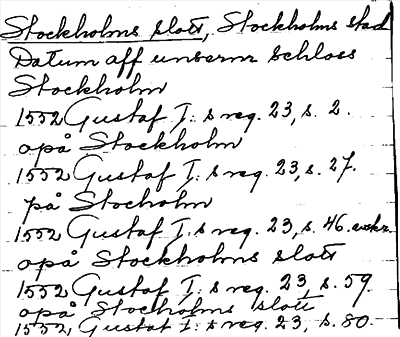 Stockholms slott, Stockholms stad
Datum aff unserm Schloss
Stockholm
1552 Gustaf I:s reg. 23, s. 2.
opå Stockholm
1552 Gustaf I:s reg. 23, s. 27.
på Stocholm
1552 Gustaf I:s reg. 23, s. 46.
opå Stockholms slott
1552 Gustaf I:s reg. 23, s. 59.
opå Stockholms slott
1552, Gustaf I:s reg. 23, s. 80.